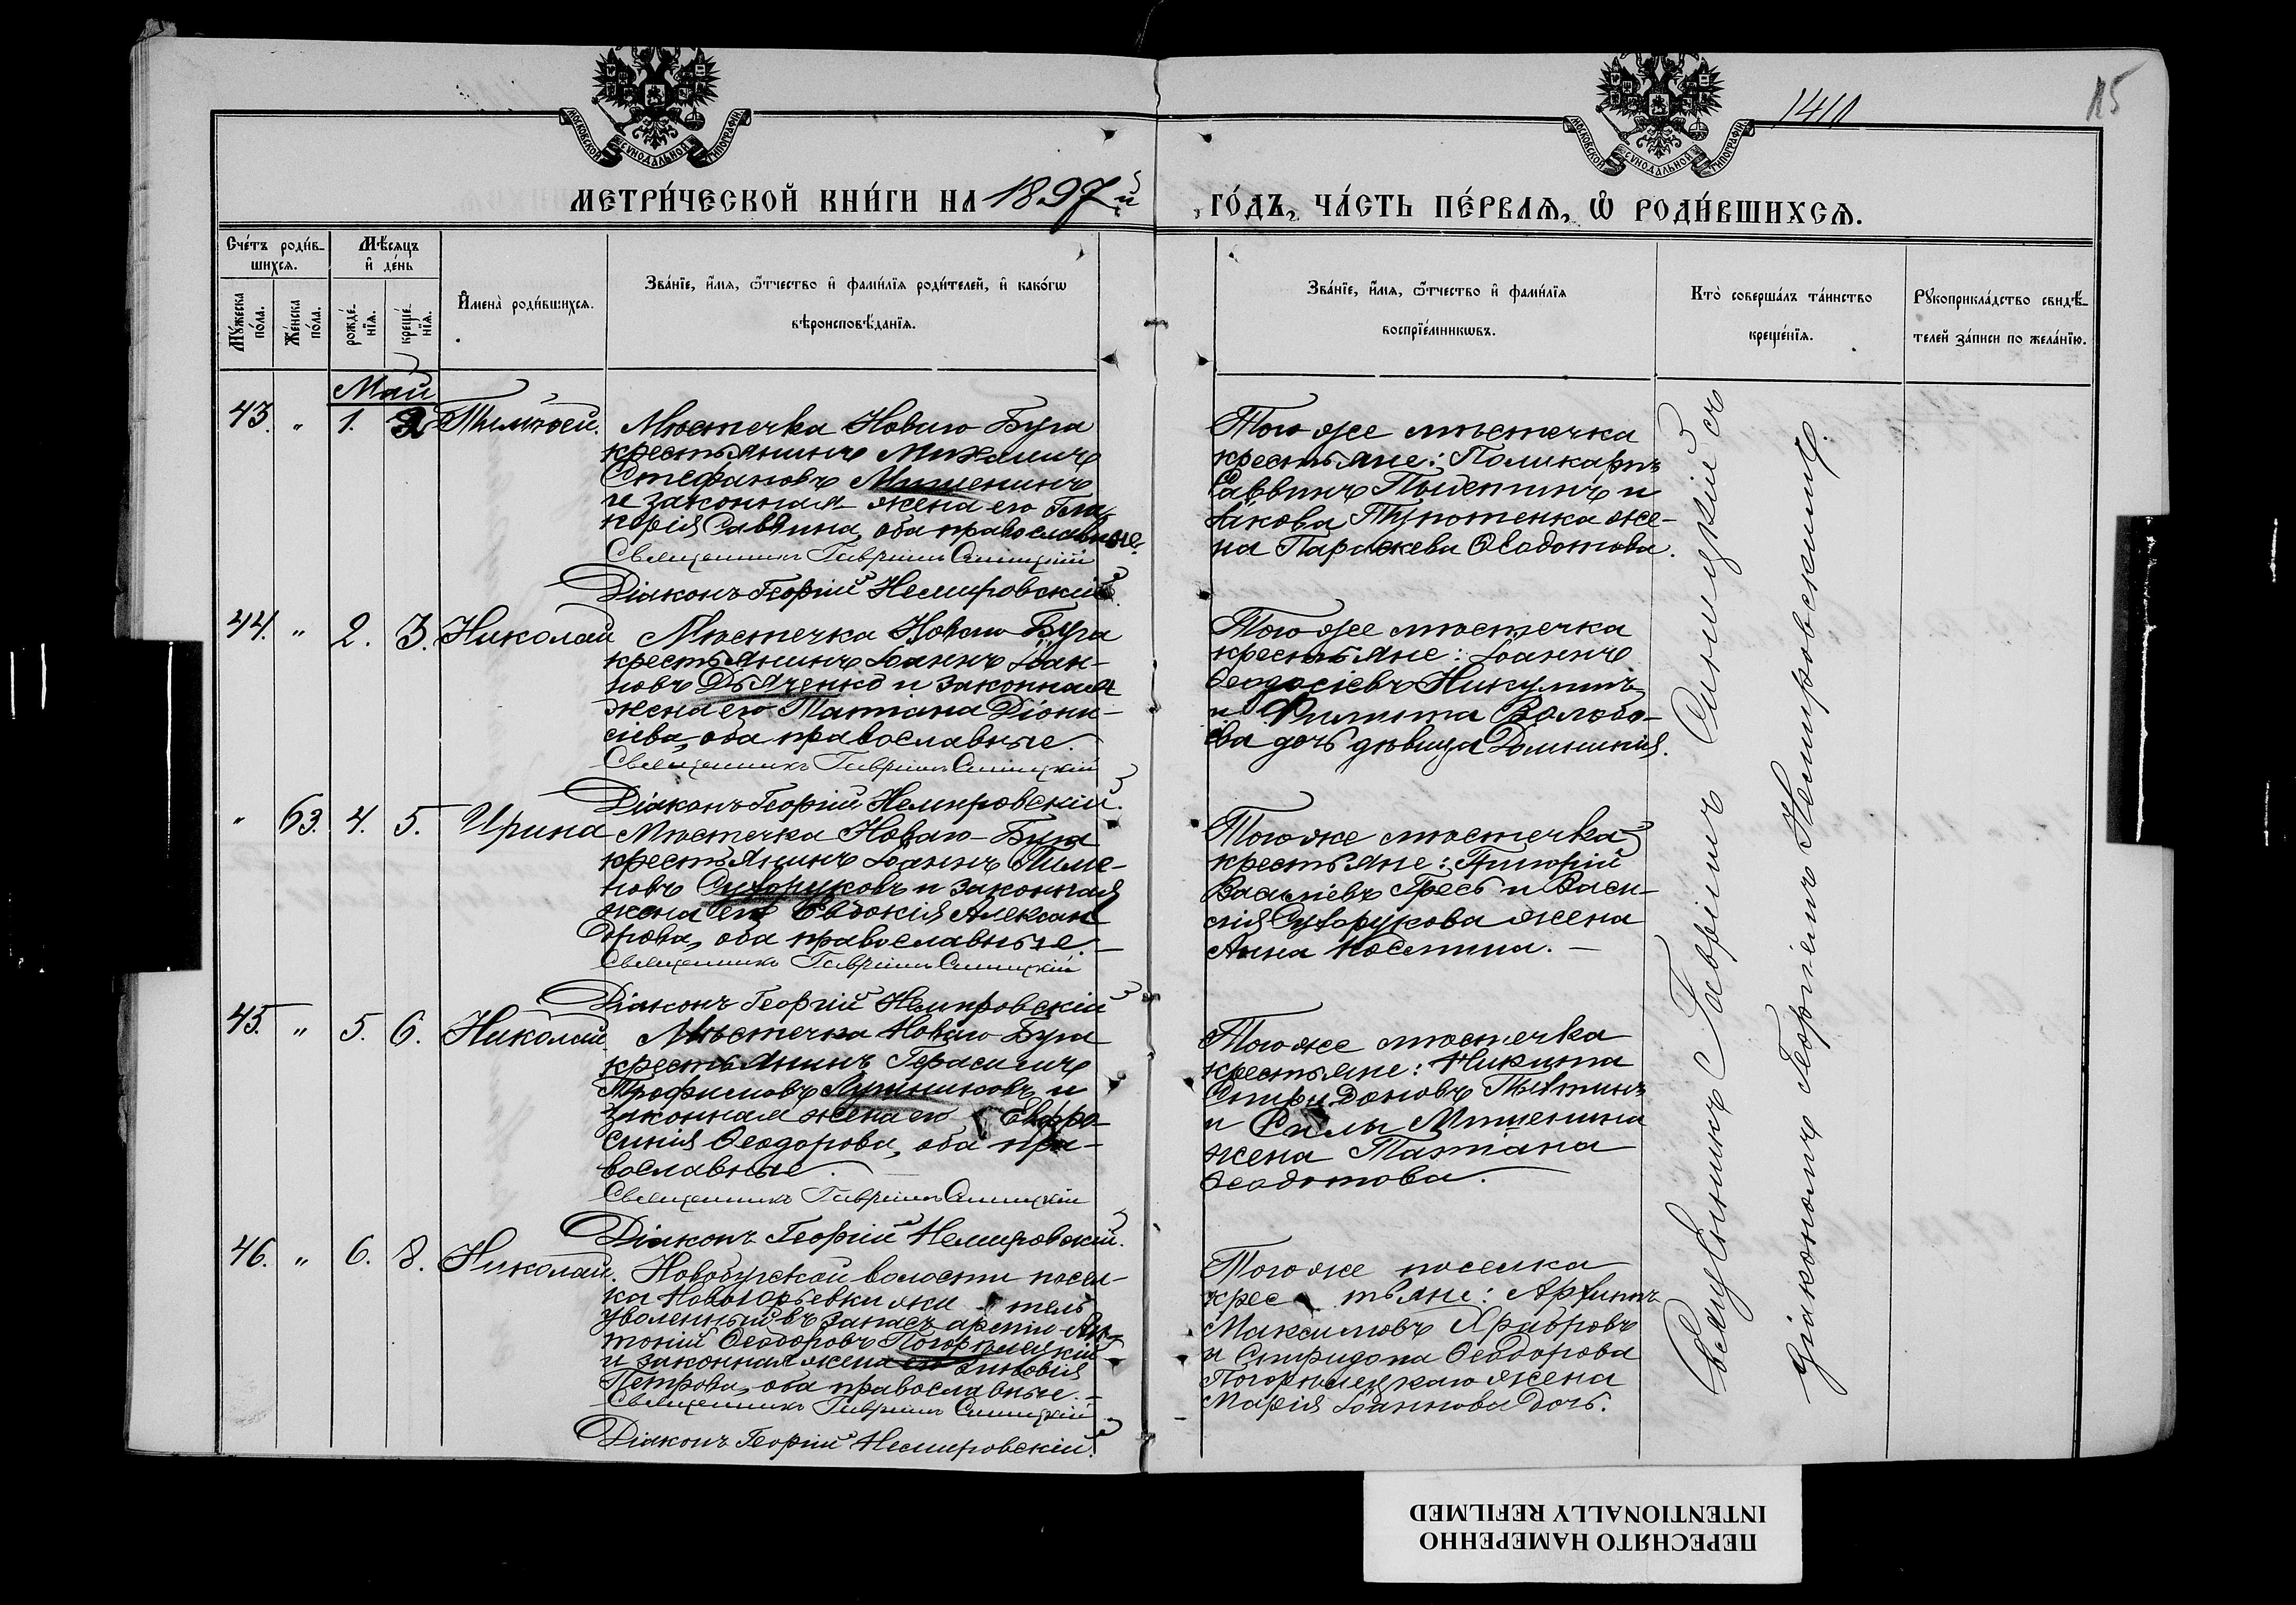 1411
15
МОСКОВСКОЙ СѴНОДАЛЬНОЙ ТИПОГРАФІИ
МОСКОВСКОЙ СѴНОДАЛЬНОЙ ТИПОГРАФІИ
МЕТРИ́ЧЕСКОЙ КНИ́ГИ НА 1897й
ГО́ДЪ, ЧА́СТЬ ПЕ́РВАЯ, Ѡ РОДИ́ВШИХСЯ.
Сче́тъ роди́в-
шихся.
Мѣ́сяцъ
и де́нь
Мꙋ́жеска по́ла.
Же́нска по́ла.
рожде́-
нїя.
креще́-
нїя.
Имена̀ роди́вшихся.
Зва́нїе, и́мя, ѻ҆́тчество и фами́лїя роди́телей, и како́гѡ
вѣроисповѣ́данїя.
Зва́нїе, и́мя, ѻ҆́тчество и фами́лїя
воспрїе́мникѡвъ.
Кто̀ соверша́лъ та́инство
креще́нїя.
Рꙋкоприкла́дство свидѣ́-
телей за́писи по жела́нїю.
Май
43. " 1. 2 Тимоѳей.
Мѣстечка Новаго Буга
крестьянинъ Михаилъ
Стефановъ Мишенинъ
и законная жена его Гли-
керія Саввина, оба православные.
Священникъ Гавріилъ Синицкій
Діаконъ Георгій Немировскій
Того же мѣстечка
крестьяне: Поликарпъ
Саввинъ и
Іакова же-
на Параскева Ѳеодотова.
44. " 2. 3. Николай
Мѣстечка Новаго Буга
крестьянинъ Іоаннъ Іоан-
новъ Дьяченко и законная
жена его Татіана Діони-
сіева, оба православные.
Священникъ Гавріилъ Синицкій
Діаконъ Георгій Немировскій.
Того же мѣстечка
крестьяне: Іоаннъ
Ѳеодосіевъ Никулинъ
и Филиппа Волобо-
ева дочь дѣвица Домникія.
" 63. 4. 5. Ирина
Мѣстечка Новаго Буга
крестьянинъ Іоаннъ Пиме-
новъ Сухоруковъ и законная
жена его Евдокія Алексан-
дрова, оба православные.
Священникъ Гавріилъ Синицкій
Діаконъ Георгій Немировскій
Того же мѣстечка
крестьяне: Григорій
Васильевъ Гресь и Васи-
лія Сухорукова жена
Анна Косьмина.
45. " 5. 6. Николай
Мѣстечка Новаго Буга
крестьянинъ Герасимъ
Трофимовъ и
законная жена его Евфро-
синія Ѳеодорова, оба пра-
вославные.
Священникъ Гавріилъ Синицкій
Діаконъ Георгій Немировскій.
Того же мѣстечка
крестьяне: Никита
Спиридоновъ
и Силы Мишенина
жена Татіана
Ѳеодотова.
46. " 6. 8. Николай.
Новобугской волости посел-
ка жи тель
уволенный въ запасъ арміи Ан-
тоній Ѳеодоровъ Погорѣлецкій
и законная жена его Зиновія
Петрова, оба православные.
Священникъ Гавріилъ Синицкій
Діаконъ Георгій Немировскій.
Того же поселка
крес тьяне: Архипъ
Максимовъ Храбровъ
и Спиридона Ѳеодорова
Погорѣлецкаго жена
Марія Іоаннова дочь.
Священникъ Гавріилъ Синицкій съ
діакономъ Георгіемъ Немировскимъ.
ПЕРЕСНЯТО НАМЕРЕННО
INTENTIONALLY REFILMED